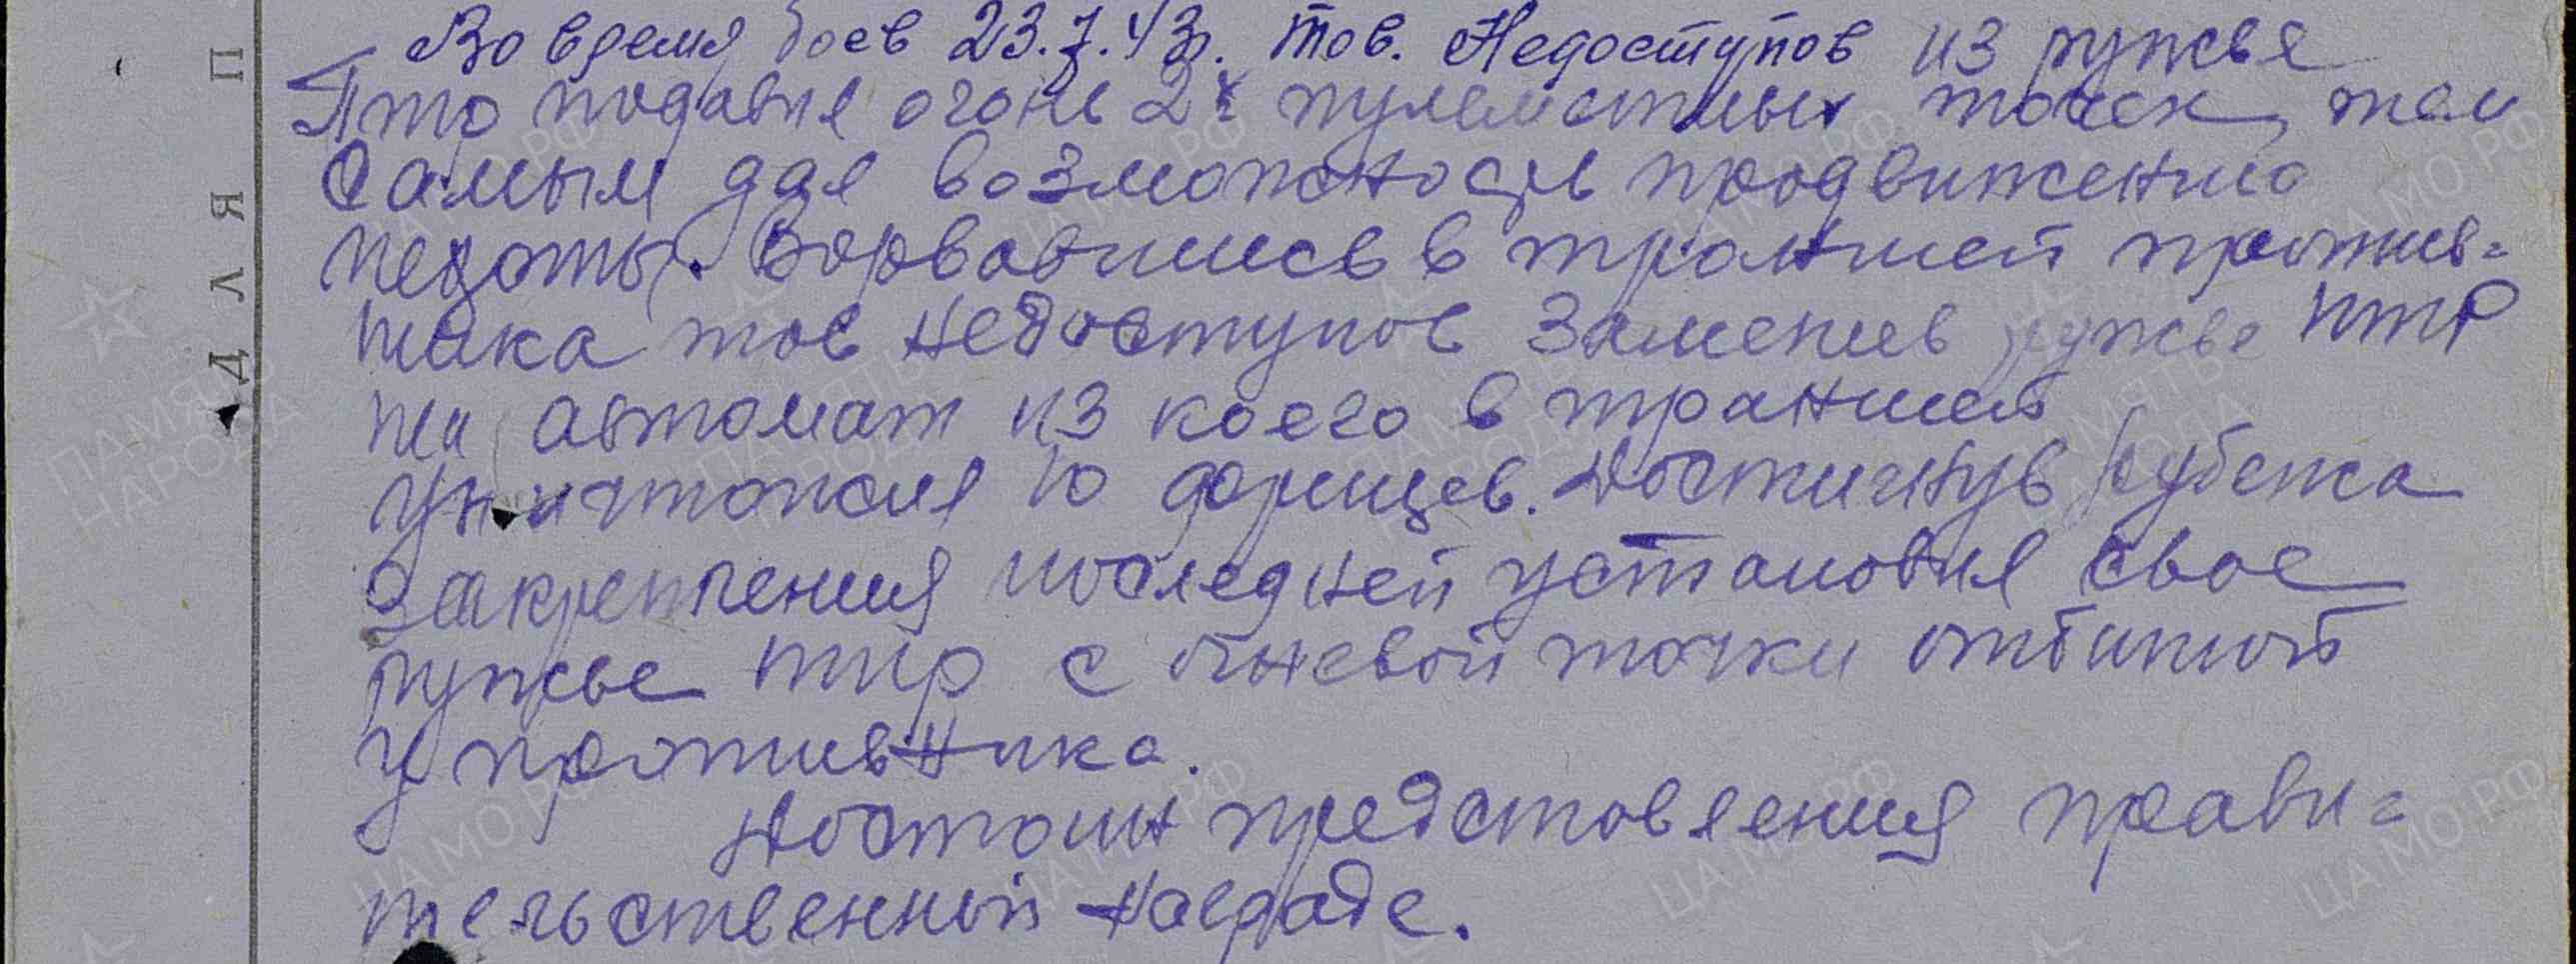 Во время боев 23.7.43г. тов. Недоступов из ружья
Птр подавил огонь 2х пулеметных точек, тем
самым дал возможность продвижению
пехоты. Ворвавшись в траншей против=
ника тов Недоступов заменив ружье ПТР
на автомат из коего в траншей
уничтожил 10 фрицев. Достигнув рубежа
закрепления последней установил свое
ружье птр с огневой точки отбитой
у противника.
Достоин представления прави=
тельственной награде.
Д Л Я П
ПАМЯТЬ НАРОДА
ЦАМО РФ